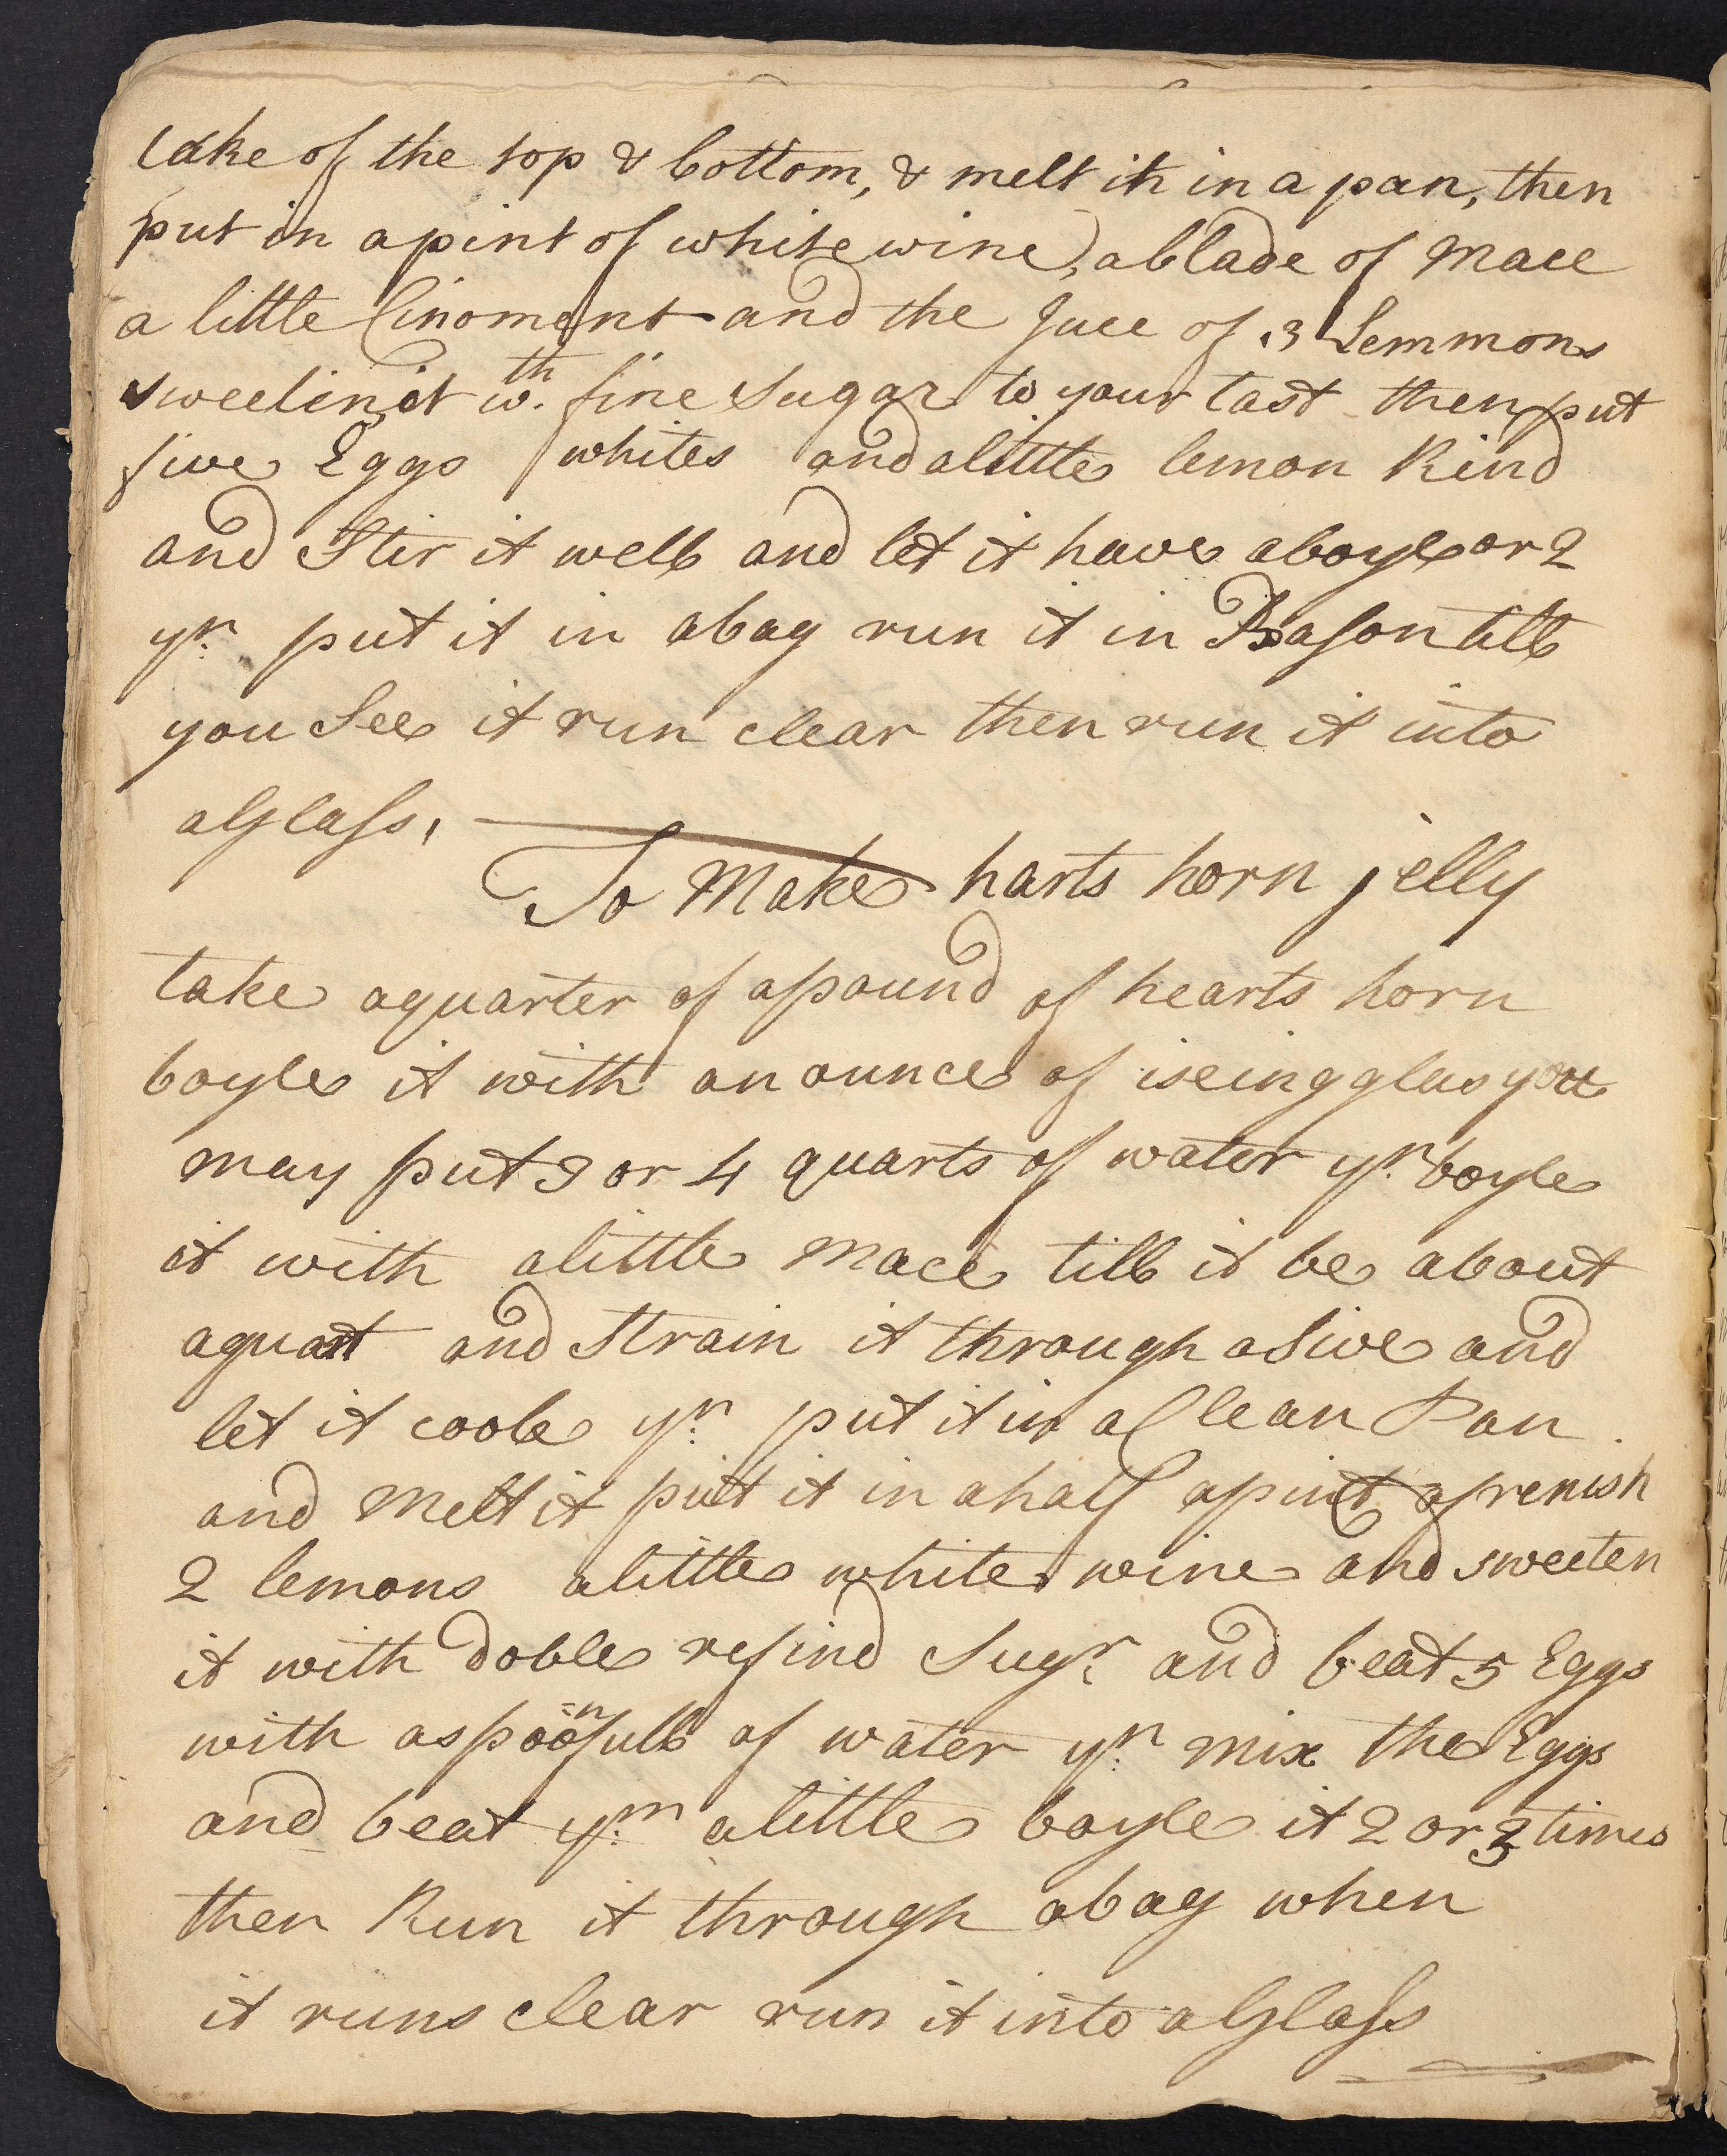 take of the top & bottom, & melt it in a pan, then
put in a pint of white wine, a blade of Mace
a little Cinomont and the Juce of 3 Lemmons
sweetin it wth. fine Sugar to your tast then put
five Eggs whites and a little lemon Rind
and Stir it well and let it have a boyle or 2
yn. put it in a bag run it in Bason till
you See it run clear then run it into
a Glass,
To Make harts horn jelly
take a quarter of a pound of hearts horn
boyle it with an ounce of iseingglas you
may put 3 or 4 quarts of water yn. boyle
it with a little Mace till it be about
a quart and Strain it through a Sive and
let it coole yn. put it in a Clean Pan
and Melt it put it in a half a pint of renish
2 lemons a little white wine and sweeten
it with doble refind Sugr. and beat 5 Eggs
with a spoonfull of water yn. mix the Eggs
and beat ym. a little boyle it 2 or 3 times
then Run it through a bag when
it runs clear run it into a Glass